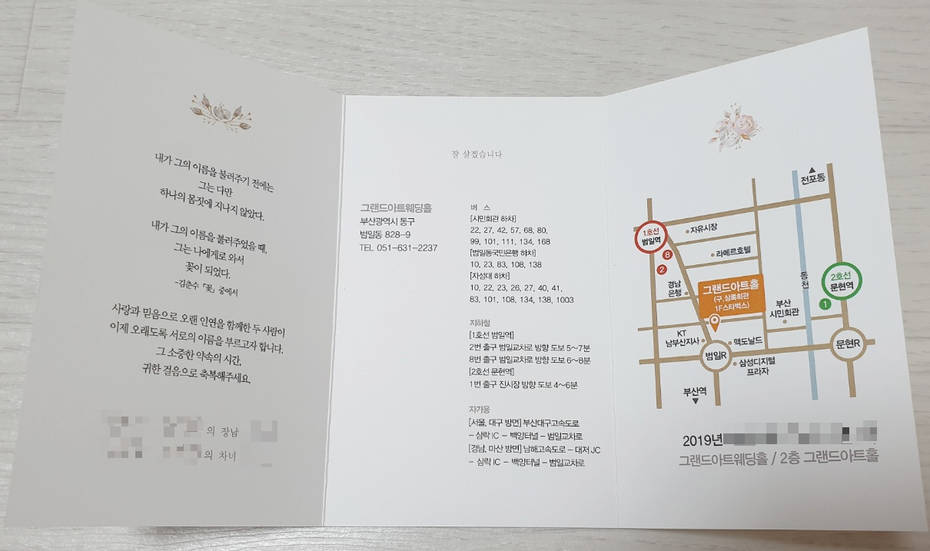 내가 그의 이름을 불러주기 전에는
그는 다만
하나의 몸짓에 지나지 않았다.
내가 그의 이름을 불러주었을 때,
그는 나에게로 와서
꽃이 되었다.
-김춘수 「꽃」 중에서
사랑과 믿음으로 오랜 인연을 함께한 두 사람이
이제 오래도록 서로의 이름을 부르고자 합니다.
그 소중한 약속의 시간,
귀한 걸음으로 축복해주세요.
의 장남
의 차녀
잘 살겠습니다
그랜드아트웨딩홀
부산광역시 동구
범일동 828-9
TEL 051-631-2237
버 스
[시민회관 하차]
22, 27, 42, 57, 68, 80,
99, 101, 111, 134, 168
[범일동국민은행 하차]
10, 23, 83, 108, 138
[자성대 하차]
10, 22, 23, 26, 27, 40, 41,
83, 101, 108, 134, 138, 1003
지하철
[1호선 범일역]
2번 출구 범일교차로 방향 도보 5~7분
8번 출구 범일교차로 방향 도보 6~8분
[2호선 문현역]
1번 출구 진시장 방향 도보 4~6분
자가용
[서울, 대구 방면] 부산대구고속도로
- 삼락 IC - 백양터널 - 범일교차로
[경남, 마산 방면] 남해고속도로 - 대저 JC
- 삼락 IC - 백양터널 - 범일교차로
전포동
1호선
범일역
자유시장
8
2
라메르호텔
경남
은행
그랜드아트홀
(구.상록회관
1F스타벅스)
동천
2호선
문현역
1
부산
시민회관
KT
남부산지사
맥도날드
범일R
문현R
삼성디지털
프라자
부산역
2019년
그랜드아트웨딩홀 / 2층 그랜드아트홀